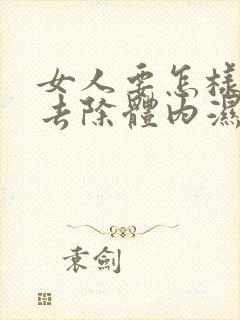 女人要怎樣
去除體內濕
袁劍